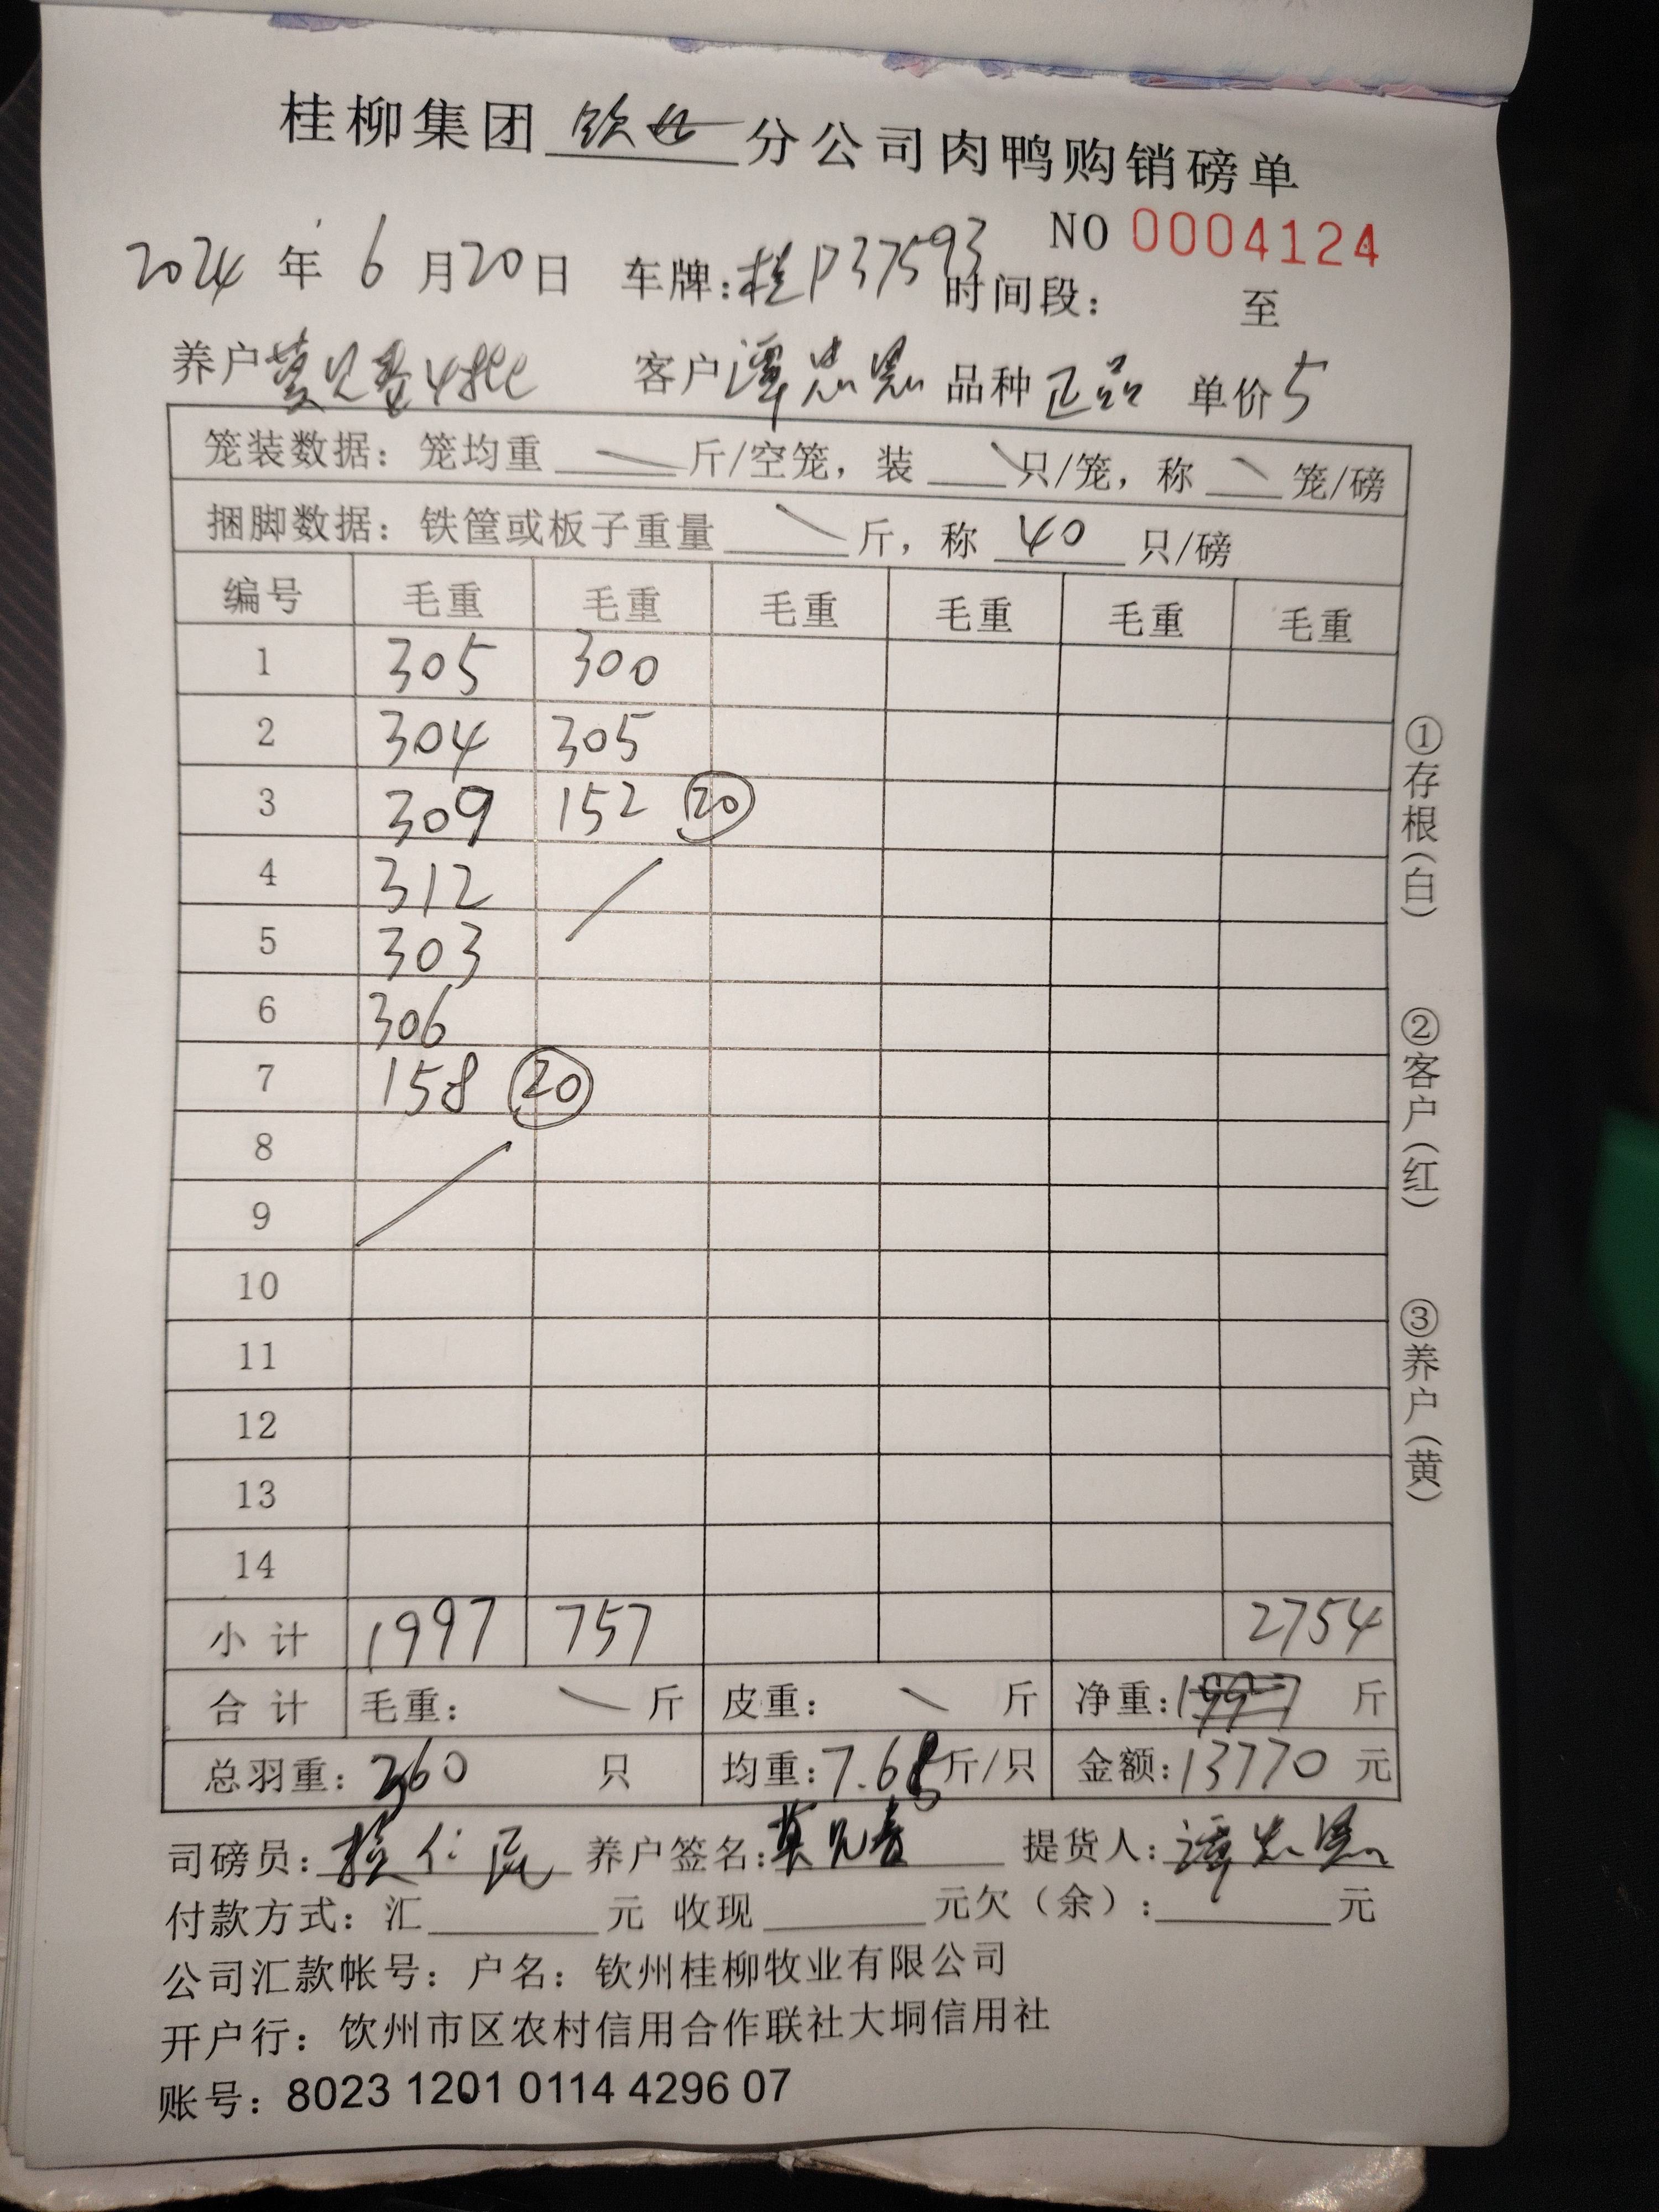 桂柳集团 钦州 分公司肉鸭购销磅单
NO 0004124
2024 年 6 月 20 日 车牌:桂P37593 时间段: 至
养户 客户 谭忠恩 品种 正品 单价 5
笼装数据:笼均重 斤/空笼,装 只/笼,称 笼/磅
捆脚数据:铁筐或板子重量 斤,称 40 只/磅
编号 毛重 毛重 毛重 毛重 毛重 毛重
1 305 300
2 304 305
3 309 152 ⑳
4 312
5 303
6 306
7 158 ⑳
8
9
10
11
12
13
14
小计 1997 757 2754
合计 毛重: 斤 皮重: 斤 净重: 斤
总羽重:360 只 均重:7.65 斤/只 金额:13770 元
司磅员: 养户签名: 提货人:谭忠恩
付款方式:汇 元 收现 元欠(余): 元
公司汇款帐号:户名:钦州桂柳牧业有限公司
开户行:钦州市区农村信用合作联社大垌信用社
账号:8023 1201 0114 4296 07
①存根(白)
②客户(红)
③养户(黄)